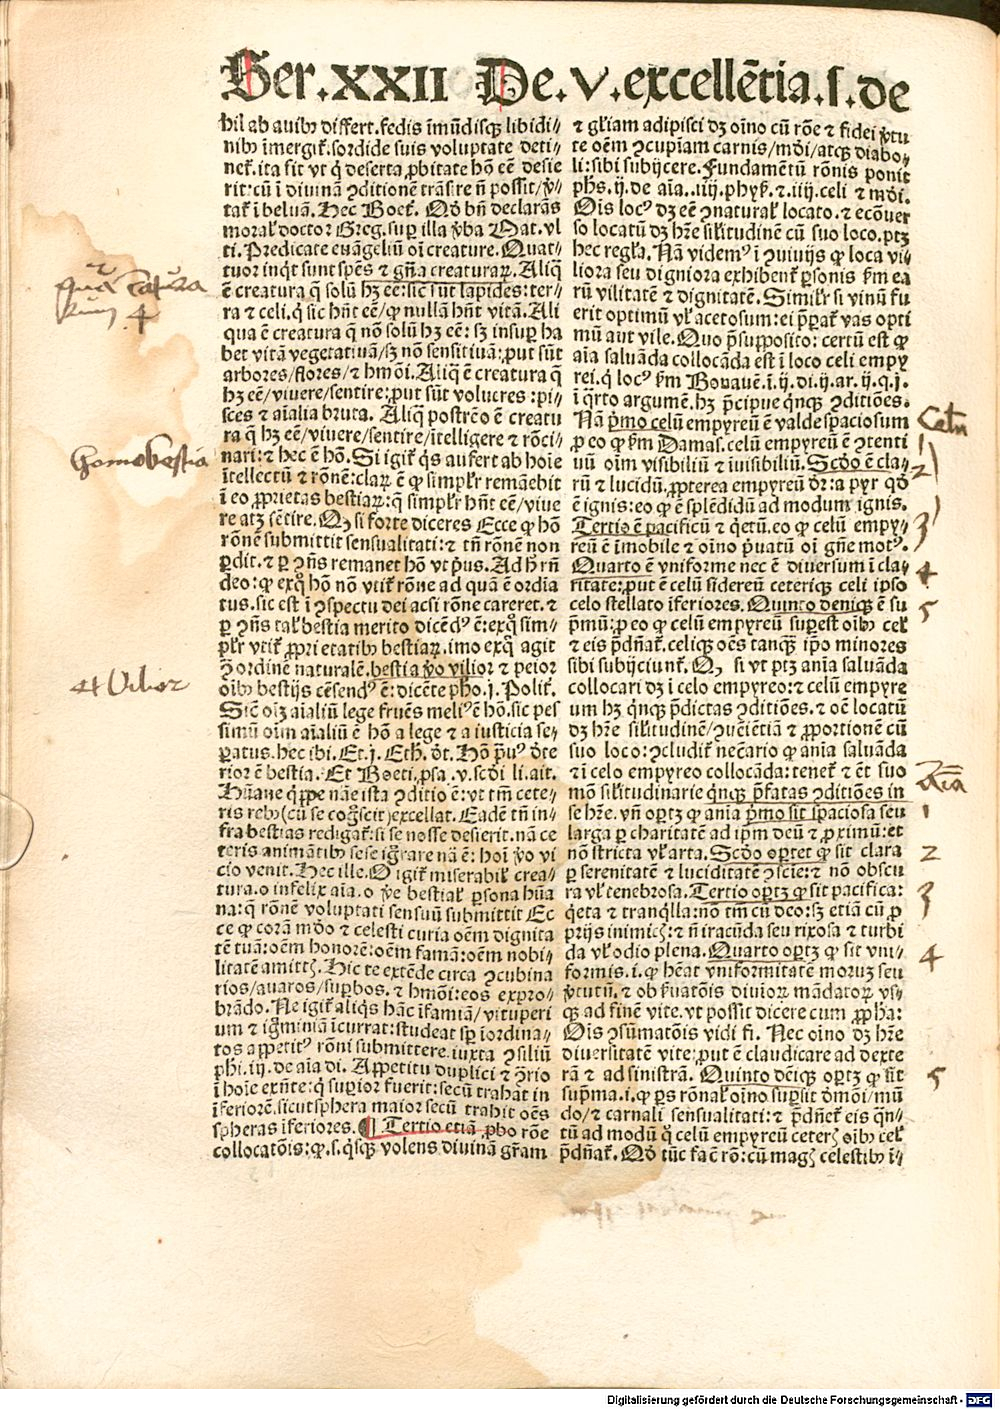 Ser.XXII De.V.excellētia.s.de
hil ab auibꝰ differt.fedis īmūdisqꝫ libidi-
nibꝰ īmergit᷑.sordide suis voluptate deti-
net᷑.ita fit vt q̄ deserta ꝓbitate hō eē desie
rit:cū ī diuinā ꝯditionē trāsire n̄ possit/v̓-
tat᷑ ī beluā.Hec Boet᷑. Qđ bn̄ declarās
moral᷑ doctor Greg.suꝑ illa v̓ba Mat.vl
ti.Predicate euāgeliū oī creature.Quat-
tuor inq̇t sunt spēs ⁊ gn̄a creaturaꝝ.Aliq̄
ē creatura q̄ solū hꝫ eē:sic sūt lapides:ter-
ra ⁊ celi.q̇ sic hn̄t eē/ꝙ nullā hn̄t vitā.Ali
qua ē creatura q̄ nō solū hꝫ eē: sꝫ insuꝑ ha
bet vitā vegetatiuā/sꝫ nō sensitiuā:ꝓut sūt
arbores/flores/⁊ hmōi.Aliq̄ ē creatura q̄
hꝫ eē/viuere/sentire:ꝓut sūt volucres:pi-
sces ⁊ aīalia bruta. Aliq̄ postreō ē creatu
ra q̄ hꝫ eē/viuere/sentire/ītelligere ⁊ rōci-
nari:⁊ hec ē hō.Si igit᷑ q̇s aufert ab hoīe
ītellectū ⁊ rōnē:claꝝ ē ꝙ simpl᷑r remāebit
ī eo ꝓprietas bestiaꝝ:q̄ simpl᷑r hn̄t eē/viue
re atqꝫ sētire.Qꝙ si forte diceres Ecce ꝙ hō
rōnē submittit sensualitati:⁊ tn̄ rōnē non
ꝑdit.⁊ ꝑ ꝯn̄s remanet hō vt pꝰus.Ad h̄ rn̄
deo:ꝙ exq̊ hō nō vtit᷑ rōne ad quā ē ordīa
tus.sic est ī ꝯspectu dei acsi rōne careret.⁊
ꝑ ꝯn̄s tal᷑ bestia merito dicēdꝰ ē:exq̊ sim-
pl᷑r vtit᷑ ꝓprietatibꝰ bestiaꝝ.imo exq̊ agit
ꝯ̄ ordinē naturalē.bestia v̓o vilior ⁊ peior
oībꝰ bestijs cēsendꝰ ē:dicēte pho.j.Polit᷑.
Sic̄ oīꝫ aīaliū lege fruēs meliꝰ ē hō.sic pes
simū oīm aīaliū ē hō a lege ⁊ a iusticia se-
ꝑatus.hec ibi.Et.j.Eth.dt̄.Hō p̄uꝰ dete
rior ē bestia.Et Boeti.psa.v.scđi li.ait.
Hūane q̇ppe nāe ista ꝯditio ē:vt tm̄ cete-
ris rebꝰ(cū se cog̓scit)excellat.Eadē tn̄ in-
fra bestias redigat᷑:si se nosse desierit.nā ce
teris animātibꝰ sese ig̓rare nā ē: hoī v̓o vi
cio venit.Hec ille.O igit᷑ miserabil᷑ crea-
tura.o infelix aīa.o v̓e bestial᷑ ꝑsona hūa
na:q̄ rōnē voluptati sensuū submittit Ec
ce ꝙ corā mđo ⁊ celesti curia oēm dignita
tē tuā:oēm honorē:oēm famā:oēm nobi-
litatē amittꝫ.Hic te extēde circa ꝯcubina
rios/auaros/suꝑbos.⁊ hmōi:eos expro-
brādo.Ne igit᷑ aliq̇s hāc īfamiā/vituperi
um ⁊ ig̓miniā īcurrat:studeat sꝑ īordina-
tos appetitꝰ rōni submittere.iuxta ꝯsiliū
phi.iij.de aīa di.Appetitu duplici ⁊ ꝯ̄rio
ī hoīe exn̄te:q̇ suꝑior fuerit:secū trahat in
īferiorē.sicut sphera maior secū trahit oēs
spheras īferiores. ¶ Tertio etiā ꝓbo rōe
collocatōis:ꝙ.s.q̇sqꝫ volens diuinā gr̄am
⁊ gl᷑iam adipisci dꝫ oīno cū rōe ⁊ fidei v̓tu
te oēm ꝯcupīam carnis/mđi/atqꝫ diabo-
li:sibi subijcere.Fundamētū rōnis ponit
phs.ij.de aīa..iiij.phyꝭ.⁊ iiij.celi ⁊ mđi.
Oīs locꝰ dꝫ eē ꝯnatural᷑ locato.⁊ ecōuer
so locatū dꝫ hr̄e sil᷑itudinē cū suo loco.ptꝫ
hec regl᷑a.Nā videmꝰ ī ꝯuiuijs ꝙ loca vi-
liora seu digniora exhibent᷑ ꝑsonis ẜm ea
rū vilitatē ⁊ dignitatē.Simil᷑r si vinū fu
erit optimū vl᷑ acetosum:ei p̄ꝑat᷑ vas opti
mū aut vile.Quo p̄supposito:certū est ꝙ
aīa saluāda collocāda est ī loco celi empy
rei.q̇ locꝰ ẜm Bonauē.ī.ij.di.ij.ar.ij.q.j.
ī q̇rto argumē.hꝫ p̄cipue q̇nqꝫ ꝯditiōes.
Nā p̓mo celū empyreū ē valde spaciosum
ꝓ eo ꝙ ẜm Damas.celū empyreū ē ꝯtenti
uū oīm visibiliū ⁊ īuisibiliū.Scđo ē cla-
rū ⁊ lucidū.ꝓpterea empyreū dr̄:a pyr qđ
ē ignis:eo ꝙ ē splēdidū ad modum ignis.
Tertio ē pacificū ⁊ q̇etū.eo ꝙ celū empy-
reū ē īmobile ⁊ oīno p̓uatū oī gn̄e motꝰ.
Quarto ē vniforme nec ē diuersum ī cla-
ritate:ꝓut ē celū sidereū ceterīqꝫ celi ipso
celo stellato īferiores.Quinto deniqꝫ ē su
p̄mū:ꝓ eo ꝙ celū empyreū suꝑest oībꝰ cel᷑
⁊ eis p̄dn̄at᷑.celiqꝫ oēs tanqꝫ ip̄o minores
sibi subijciunt᷑.Qꝙ si vt ptꝫ anīa saluāda
collocari dꝫ ī celo empyreo:⁊ celū empyre
um hꝫ q̇nqꝫ p̄dictas ꝯditiōes.⁊ oē locatū
dꝫ hr̄e sil᷑itudinē/ꝯueīētiā ⁊ ꝓportionē cū
suo loco:ꝯcludit᷑ nec̄ario ꝙ anīa saluāda
⁊ ī celo empyreo collocāda:tenet᷑ ⁊ ēt suo
mō sil᷑itudinarie q̇nqꝫ p̄fatas ꝯditiōes in
se hr̄e.vn̄ oprꝫ ꝙ anīa p̓mo sit spaciosa seu
larga ꝑ charitatē ad ip̄m deū ⁊ ꝓximū:et
nō stricta vl᷑ arta.Scđo oportet ꝙ sit clara
ꝑ serenitatē ⁊ luciditatē ꝯscīe:⁊ nō obscu
ra vl᷑ tenebrosa.Tertio oprtꝫ ꝙ sit pacifica:
q̇eta ⁊ tranq̇lla:nō tm̄ cū deo:sꝫ etiā cū ꝓ
prijs inimicꝭ:⁊ n̄ iracūda seu rixosa ⁊ turbi
da vl᷑ odio plena.Quarto oprtꝫ ꝙ sit vni-
formis.i.ꝙ hēat vniformitatē moruꝫ seu
v̓tutū.⁊ ob ẜuatōis diuiorꝝ mādatorꝝ vs-
qꝫ ad finē vite.vt possit dicere cum ꝓpha:
Oīs ꝯsūmatōis vidi fi. Nec oīno dꝫ hr̄e
diuersitatē vite:ꝓut ē claudicare ad dexte
rā ⁊ ad sinistrā. Quinto dēiqꝫ oprtꝫ ꝙ sit
sup̄ma.i.ꝙ ꝑs rōnal᷑ oīno suꝑsit d̓moī/mū
do/⁊ carnali sensualitati:⁊ p̄dn̄et᷑ eis q̇n-
tū ad modū q̊ celū empyreū ceterꝭ oībꝰ cel᷑
p̄dn̄at᷑.Qđ tūc fac̄ rō:cū magꝭ celestibꝰ ī-
4
homo bestia
Vilior
Celū
1
2
3
4
5
Aīa
1
2
3
4
5
Digitalisierung gefördert durch die Deutsche Forschungsgemeinschaft - DFG